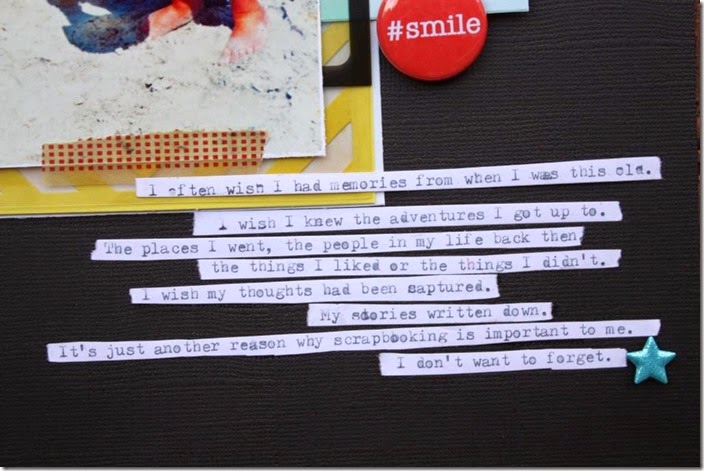 #smile
I often wish I had memories from when I was this old.
I wish I knew the adventures I got up to.
The places I went, the people in my life back then
the things I liked or the things I didn't.
I wish my thoughts had been captured.
My stories written down.
It's just another reason why scrapbooking is important to me.
I don't want to forget.